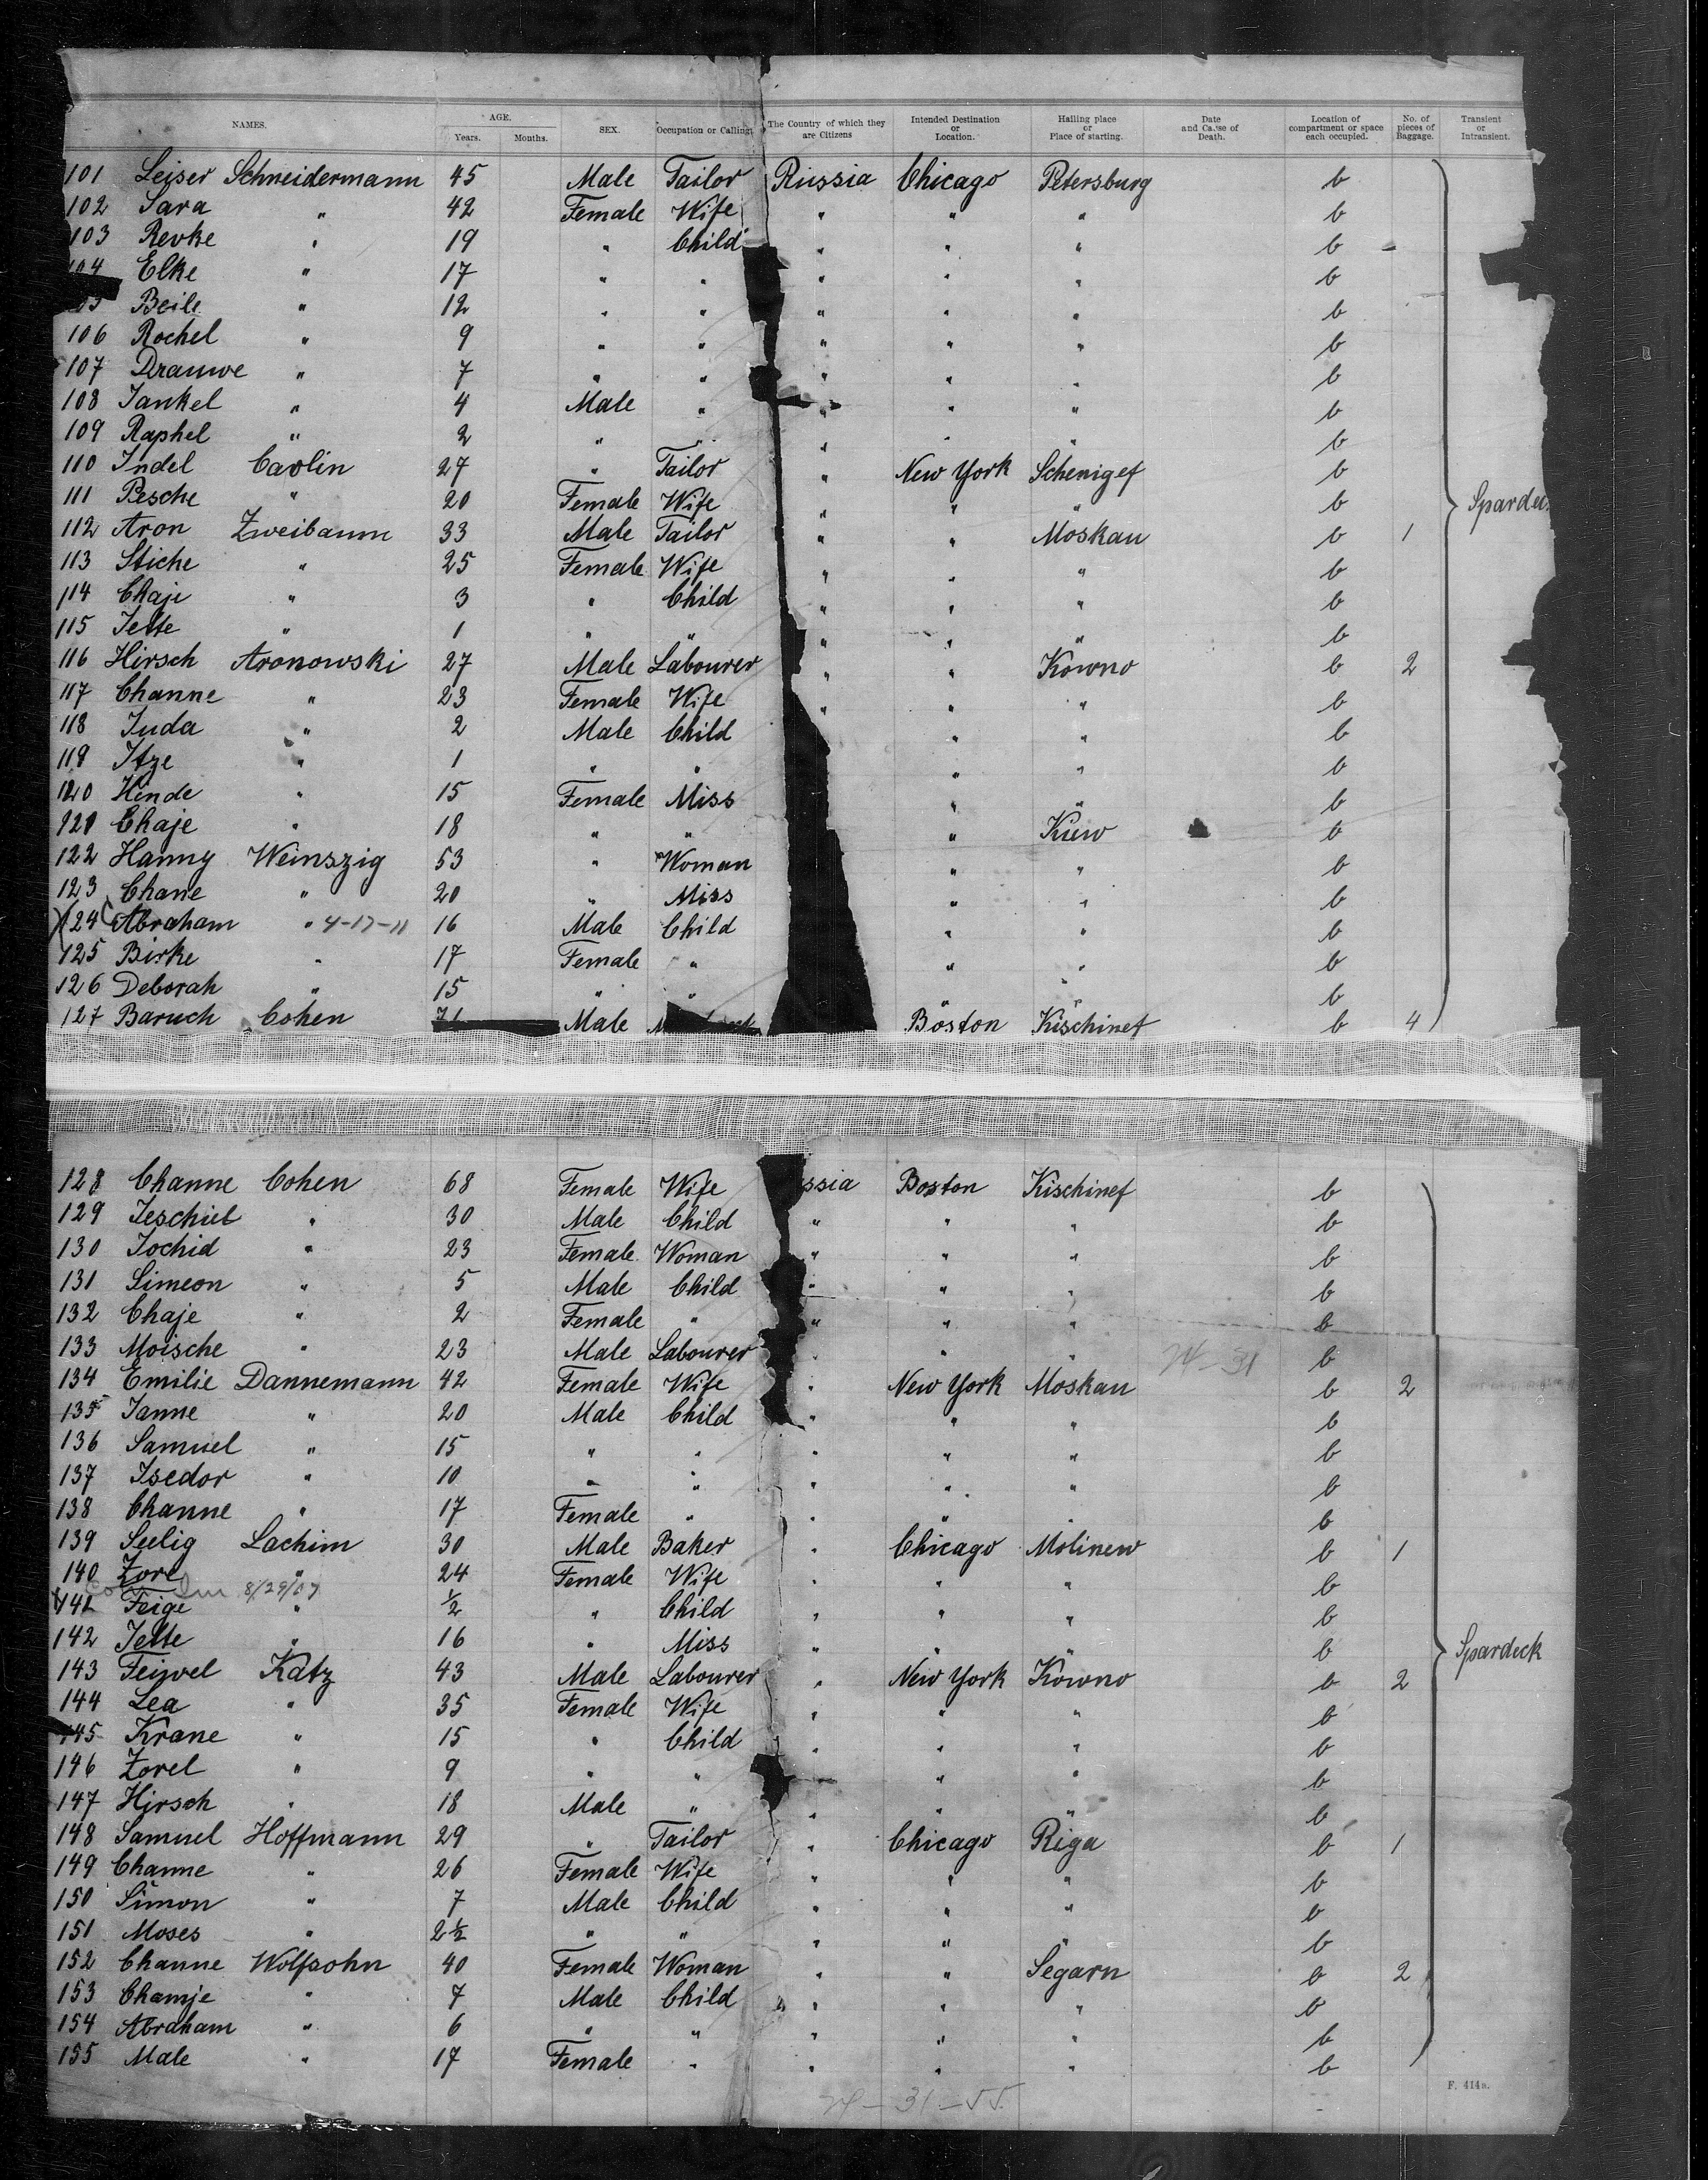 NAMES. AGE. Years. Months. SEX. Occupation or Calling. The Country of which they are Citizens Intended Destination or Location. Hailing place or Place of starting. Date and Cause of Death. Location of compartment or space each occupied. No. of pieces of Baggage. Transient or Intransient.
101 Leiser Schneidermann 45 Male Tailor Russia Chicago Petersburg b
102 Sara " 42 Female Wife " " " b
103 Revke " 19 " Child " " " b
104 Elke " 17 " " " " " b
105 Beile " 12 " " " " " b
106 Rochel " 9 " " " " " b
107 Drauwe " 7 " " " " " b
108 Jankel " 4 Male " " " " b
109 Raphel " 2 " " " " " b
110 Judel Carlin 27 " Tailor " New York Schenigef b
111 Pesche " 20 Female Wife " " " b
Spardeck
112 Aron Zweibaum 33 Male Tailor " " Moskau b 1
113 Stiche " 25 Female Wife " " " b
114 Chaje " 3 " Child " " " b
115 Jette " 1 " " " " " b
116 Hirsch Aronowski 27 Male Labourer " " Kowno b 2
117 Channe " 23 Female Wife " " " b
118 Juda " 2 Male Child " " b
119 Itze " 1 " " " " b
120 Hende " 15 Female Miss " " b
121 Chaje " 18 " " " Kiew b
122 Hanny Weinszig 53 " Woman " " b
123 Chane " 20 " Miss " " b
124 Abraham " 4-17-11 16 Male Child " " b
125 Birke " 17 Female " " " b
126 Deborah " 15 " " " " b
127 Baruch Cohen 71 Male Boston Kischinef b 4
128 Channe Cohen 68 Female Wife ssia Boston Kischinef b
129 Jeschiel " 30 Male Child " " " b
130 Jochid " 23 Female Woman " " " b
131 Simeon " 5 Male Child " " " b
132 Chaje " 2 Female " " " " b
133 Moische " 23 Male Labourer " " " 24-31 b
134 Emilie Dannemann 42 Female Wife " New York Moskau b 2
135 Janne " 20 Male Child " " " b
136 Samuel " 15 " " " " " b
137 Isedor " 10 " " " " " b
138 Channe " 17 Female " " " " b
139 Seelig Lachim 30 Male Baker " Chicago Molinew b 1
140 Zore " 24 Female Wife " " " b
8/29/07
141 Feige " ½ " Child " " " b
142 Jette " 16 " Miss " " " b
Spardeck
143 Feiwel Katz 43 Male Labourer " New York Kowno b 2
144 Lea " 35 Female Wife " " " b
145 Krane " 15 " Child " " " b
146 Zorel " 9 " " " " " b
147 Hirsch " 18 Male " " " " b
148 Samuel Hoffmann 29 " Tailor " Chicago Riga b 1
149 Channe " 26 Female Wife " " " b
150 Simon " 7 Male Child " " " b
151 Moses " 2½ " " " " " b
152 Channe Wolfsohn 40 Female Woman " " Segarn b 2
153 Chamje " 7 Male Child " " " b
154 Abraham " 6 " " " " " b
155 Male " 17 Female " " " " b
F. 414a.
24-31-55.